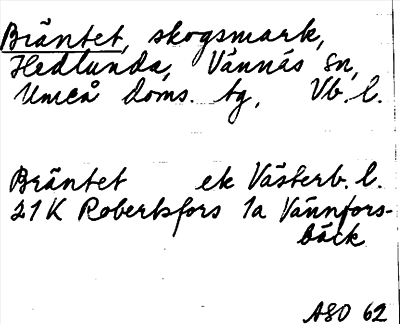 Bräntet, skogsmark,
Hedlunda, Vännäs sn,
Umeå doms. tg, Vb. l.
Bräntet ek Västerb. l.
21K Robertsfors 1a Vännfors-
bäck
ASO 62